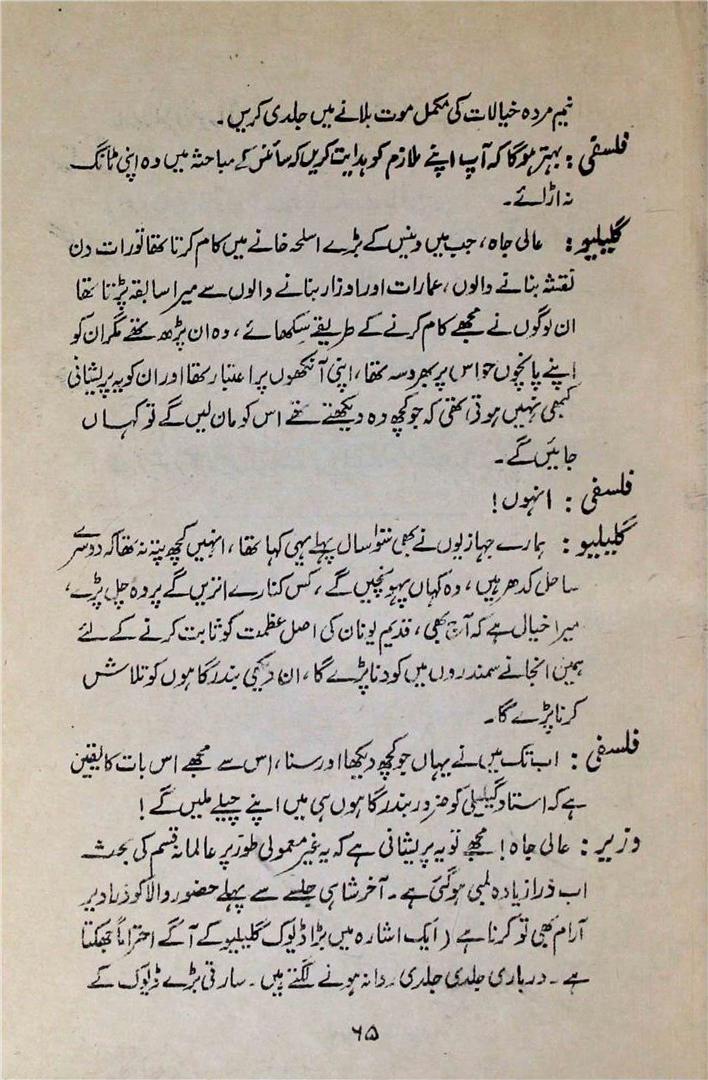 نیم مردہ خیالات کی مکمل موت بلانے میں جلدی کریں۔
فلسفی : بہتر ہوگا کہ آپ اپنے ملازم کو ہدایت کریں کہ سائنس کے مباحثہ میں وہ اپنی ٹانگ
نہ اڑائے۔
گلیلیو : عالی جاہ، جب میں وینس کے بڑے اسلحہ خانے میں کام کرتا تھا تو رات دن
نقشہ بنانے والوں، عمارات اور اوزار بنانے والوں سے میرا سابقہ پڑتا تھا
ان لوگوں نے مجھے کام کرنے کے طریقے سکھائے، وہ ان پڑھ تھے مگر ان کو
اپنے پانچوں حواس پر بھروسہ تھا، اپنی آنکھوں پر اعتبار تھا اور ان کو یہ پریشانی
کبھی نہیں ہوتی تھی کہ جو کچھ وہ دیکھتے تھے اس کو مان لیں گے تو کہاں
جائیں گے۔
فلسفی : انہوں!
گلیلیو : ہمارے جہازیوں نے بھی سو سال پہلے یہی کہا تھا، انہیں کچھ پتہ نہ تھا کہ دوسرے
ساحل کدھر ہیں، وہ کہاں پہونچیں گے، کس کنارے اتریں گے پر وہ چل پڑے،
میرا خیال ہے کہ آج بھی، قدیم یونان کی اصل عظمت کو ثابت کرنے کے لئے
ہمیں انجانے سمندروں میں کودنا پڑے گا، ان دیکھی بندرگاہوں کو تلاش
کرنا پڑے گا۔
فلسفی : اب تک میں نے یہاں جو کچھ دیکھا اور سنا، اس سے مجھے اس بات کا یقین
ہے کہ استاد گلیلی کو ضرور بندرگاہوں ہی میں اپنے چیلے ملیں گے!
وزیر : عالی جاہ! مجھے تو یہ پریشانی ہے کہ یہ غیر معمولی طور پر عالمانہ قسم کی بحث
اب ذرا زیادہ لمبی ہو گئی ہے۔ آخر شاہی جلسے سے پہلے حضور والا کو ذرا دیر
آرام بھی تو کرنا ہے (ایک اشارہ میں بڑا ڈیوک گلیلیو کے آگے احتراماً جھکتا
ہے۔ درباری جلدی جلدی روانہ ہونے لگتے ہیں۔ سارتی بڑے ڈیوک کے
۶۵